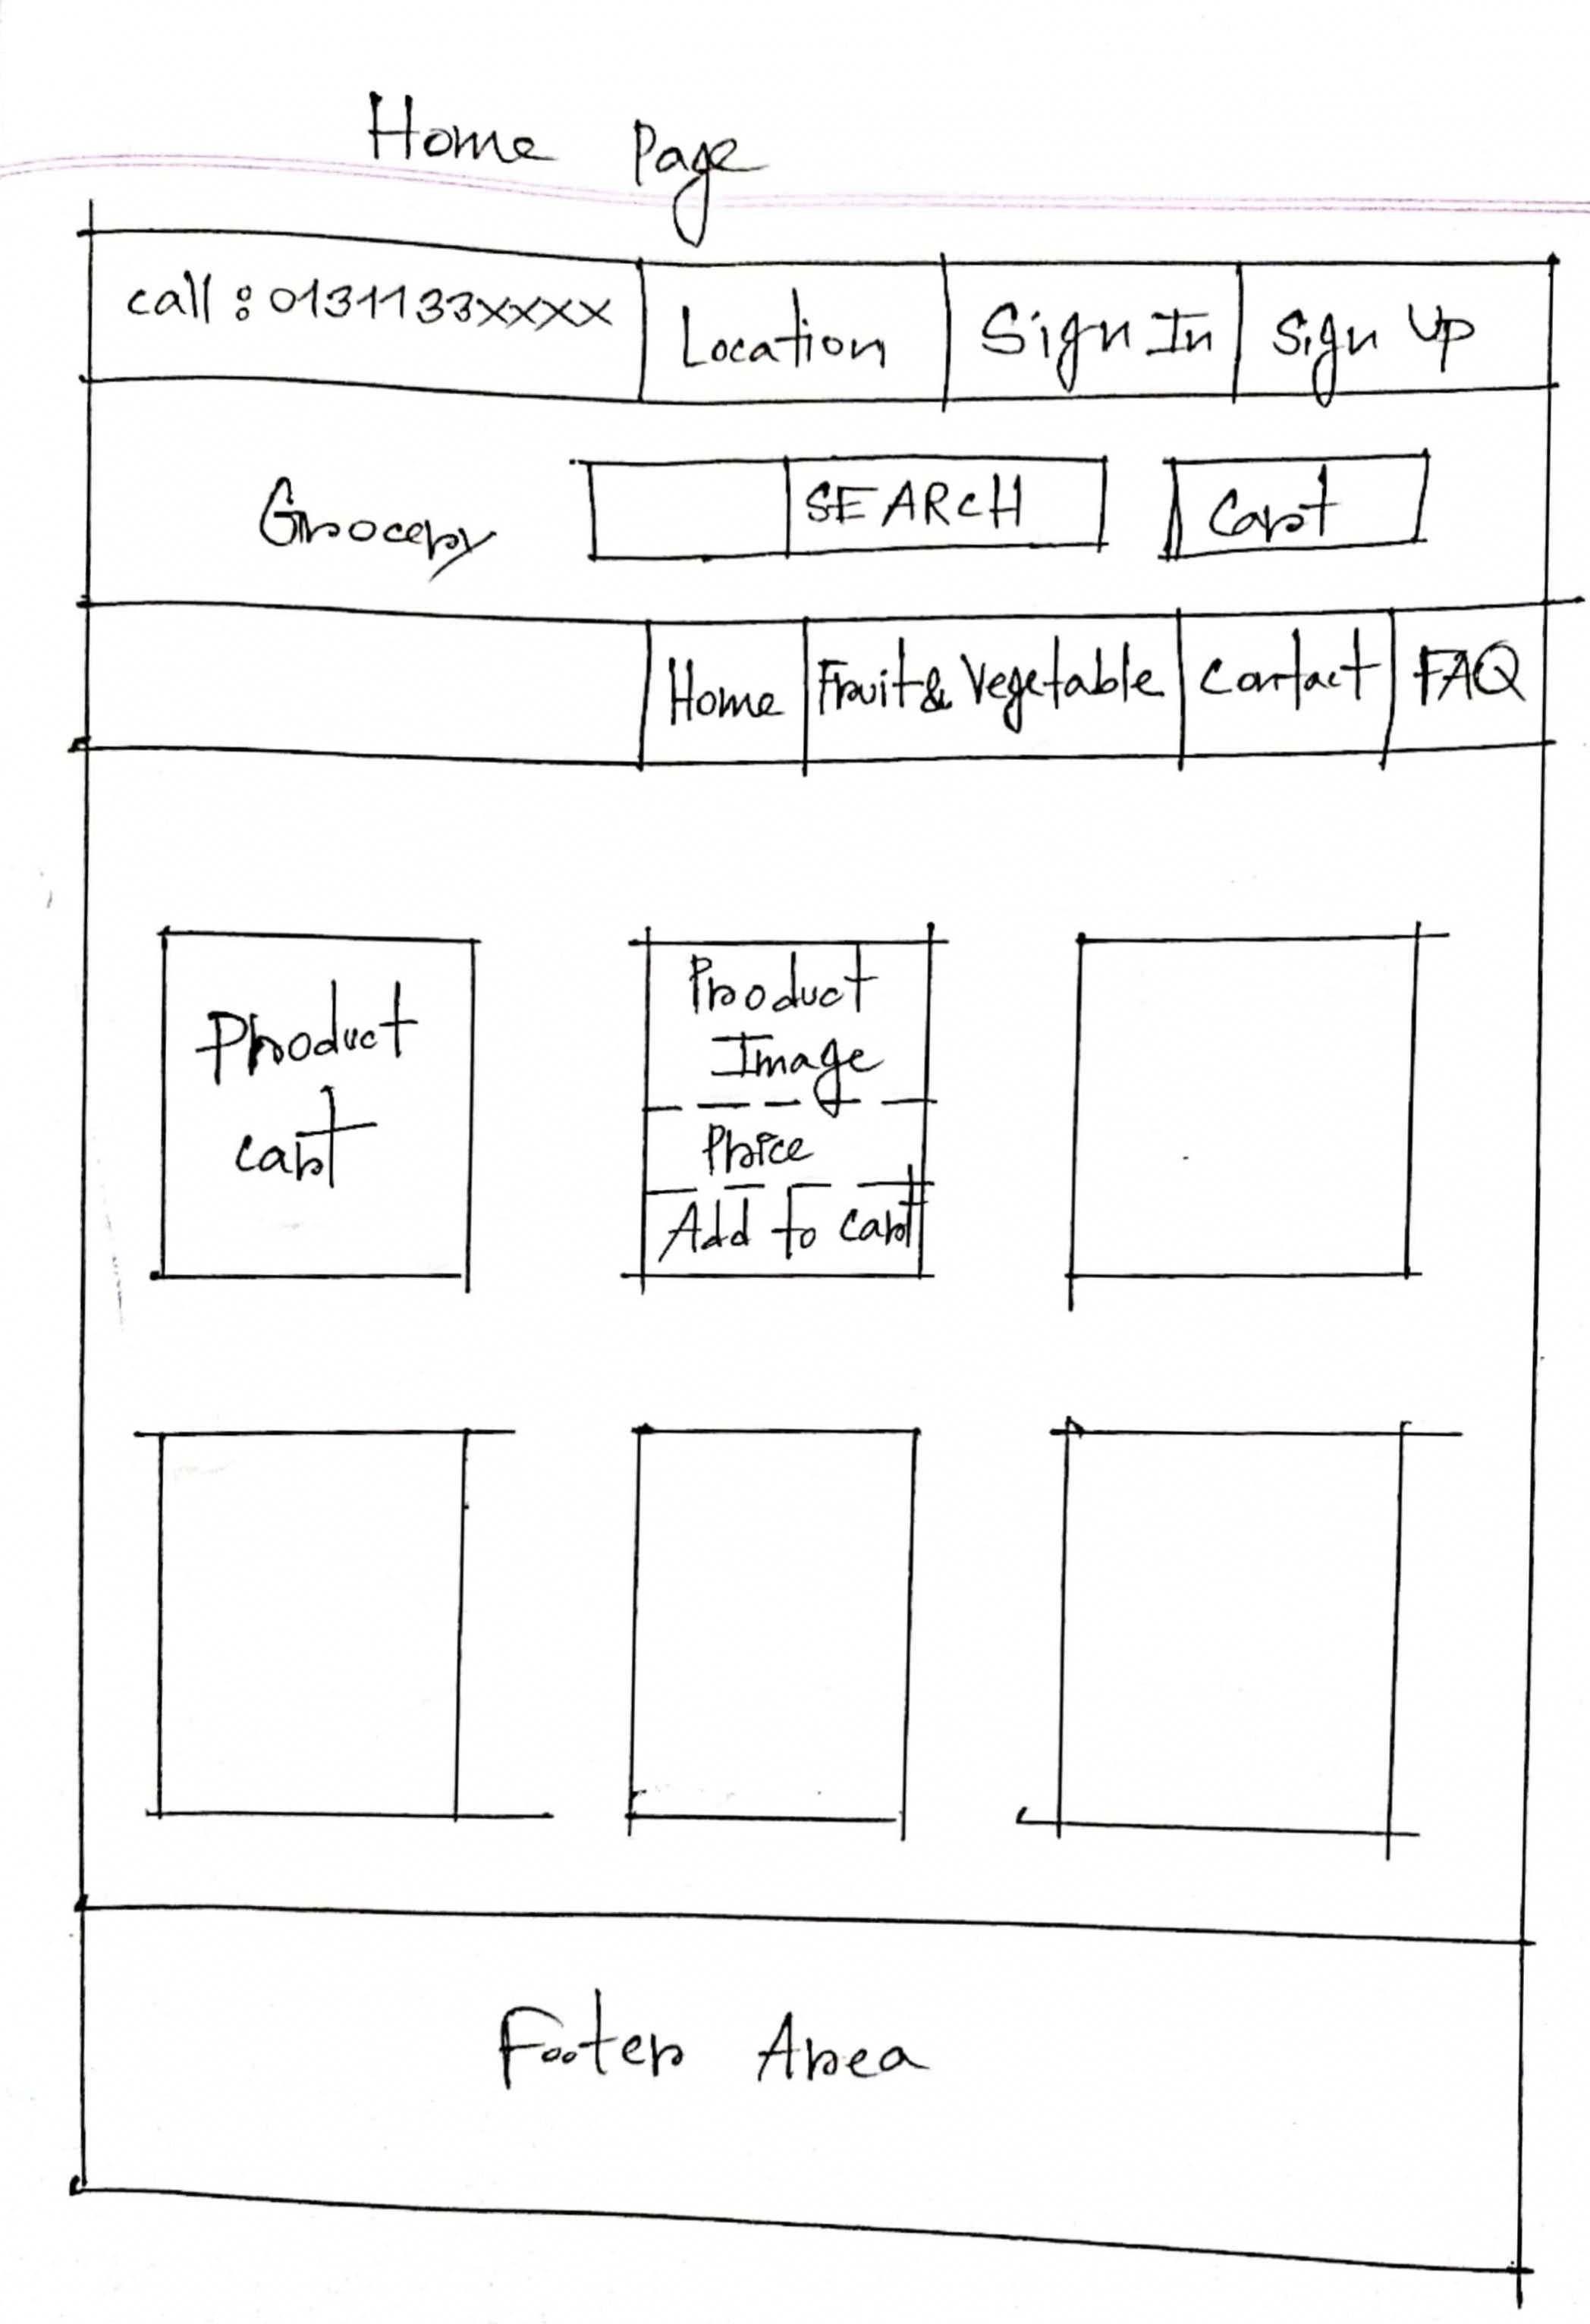 Home Page
call : 0131133xxxx Location Sign In Sign Up
Grocery SEARCH Cart
Home Fruit & Vegetable Contact FAQ
Product
cart
Product
Image
Price
Add to cart
Footer Area